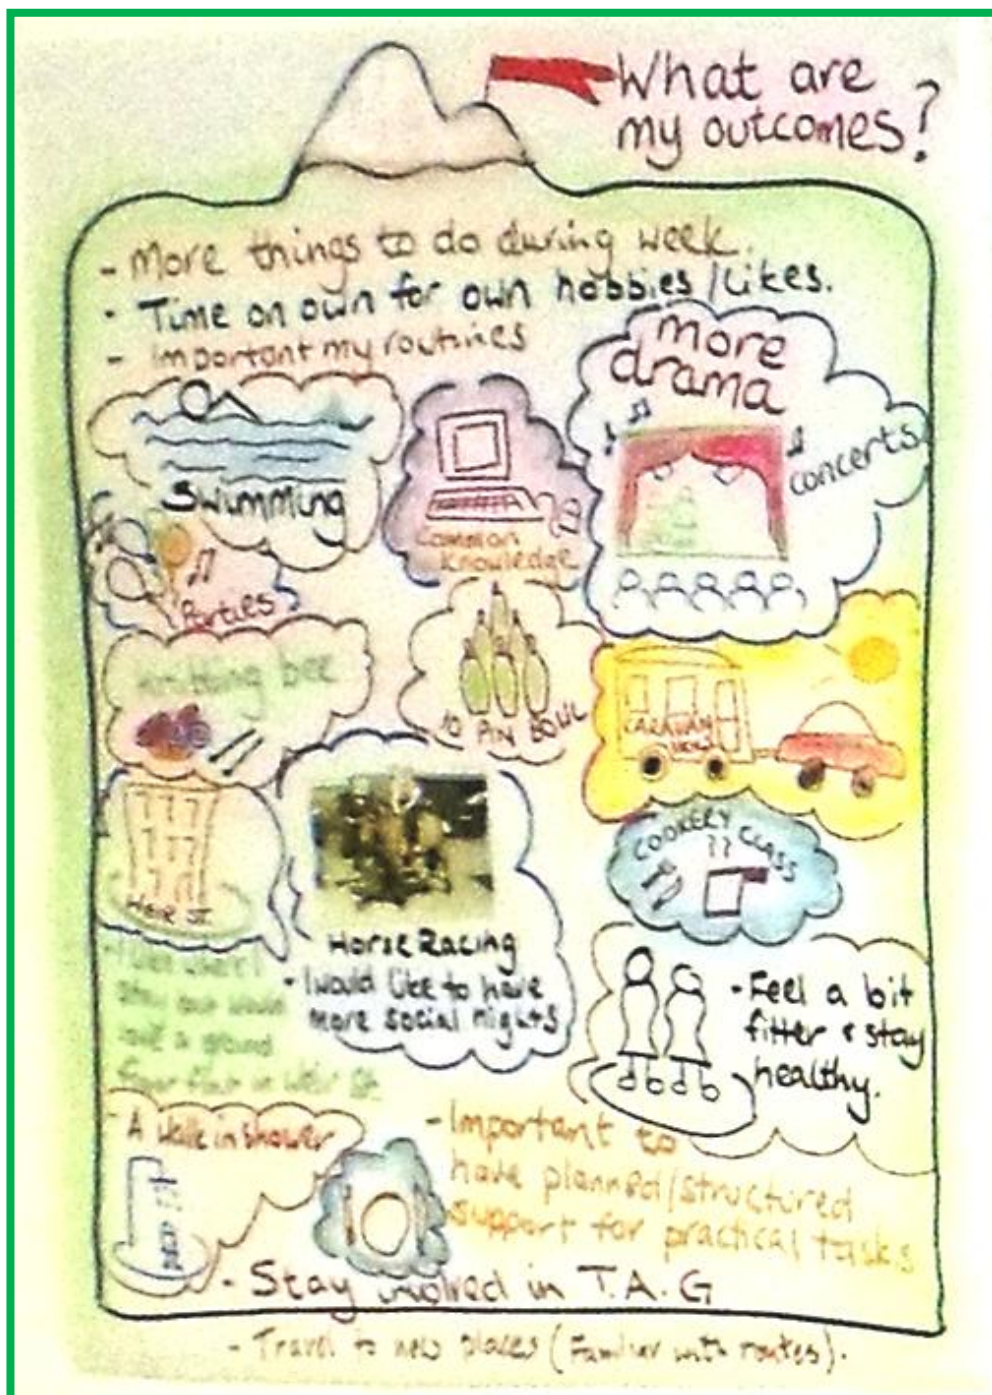 What are
my outcomes?
- More things to do during week.
- Time on own for own hobbies/Likes.
- Important my routines
more
drama
concerts.
Swimming
Common
Knowledge
Parties
Knitting bee
10 PIN BOWL
CARAVAN
COOKERY CLASS
??
WEIR ST.
Horse Racing
- I would like to have
more social nights
stay
a ground
floor flat in Weir St.
- Feel a bit
fitter & stay
healthy.
- A walk in shower
- Important to
have planned/structured
support for practical tasks
- Stay involved in T.A.G
- Travel to new places (Familiar with routes).